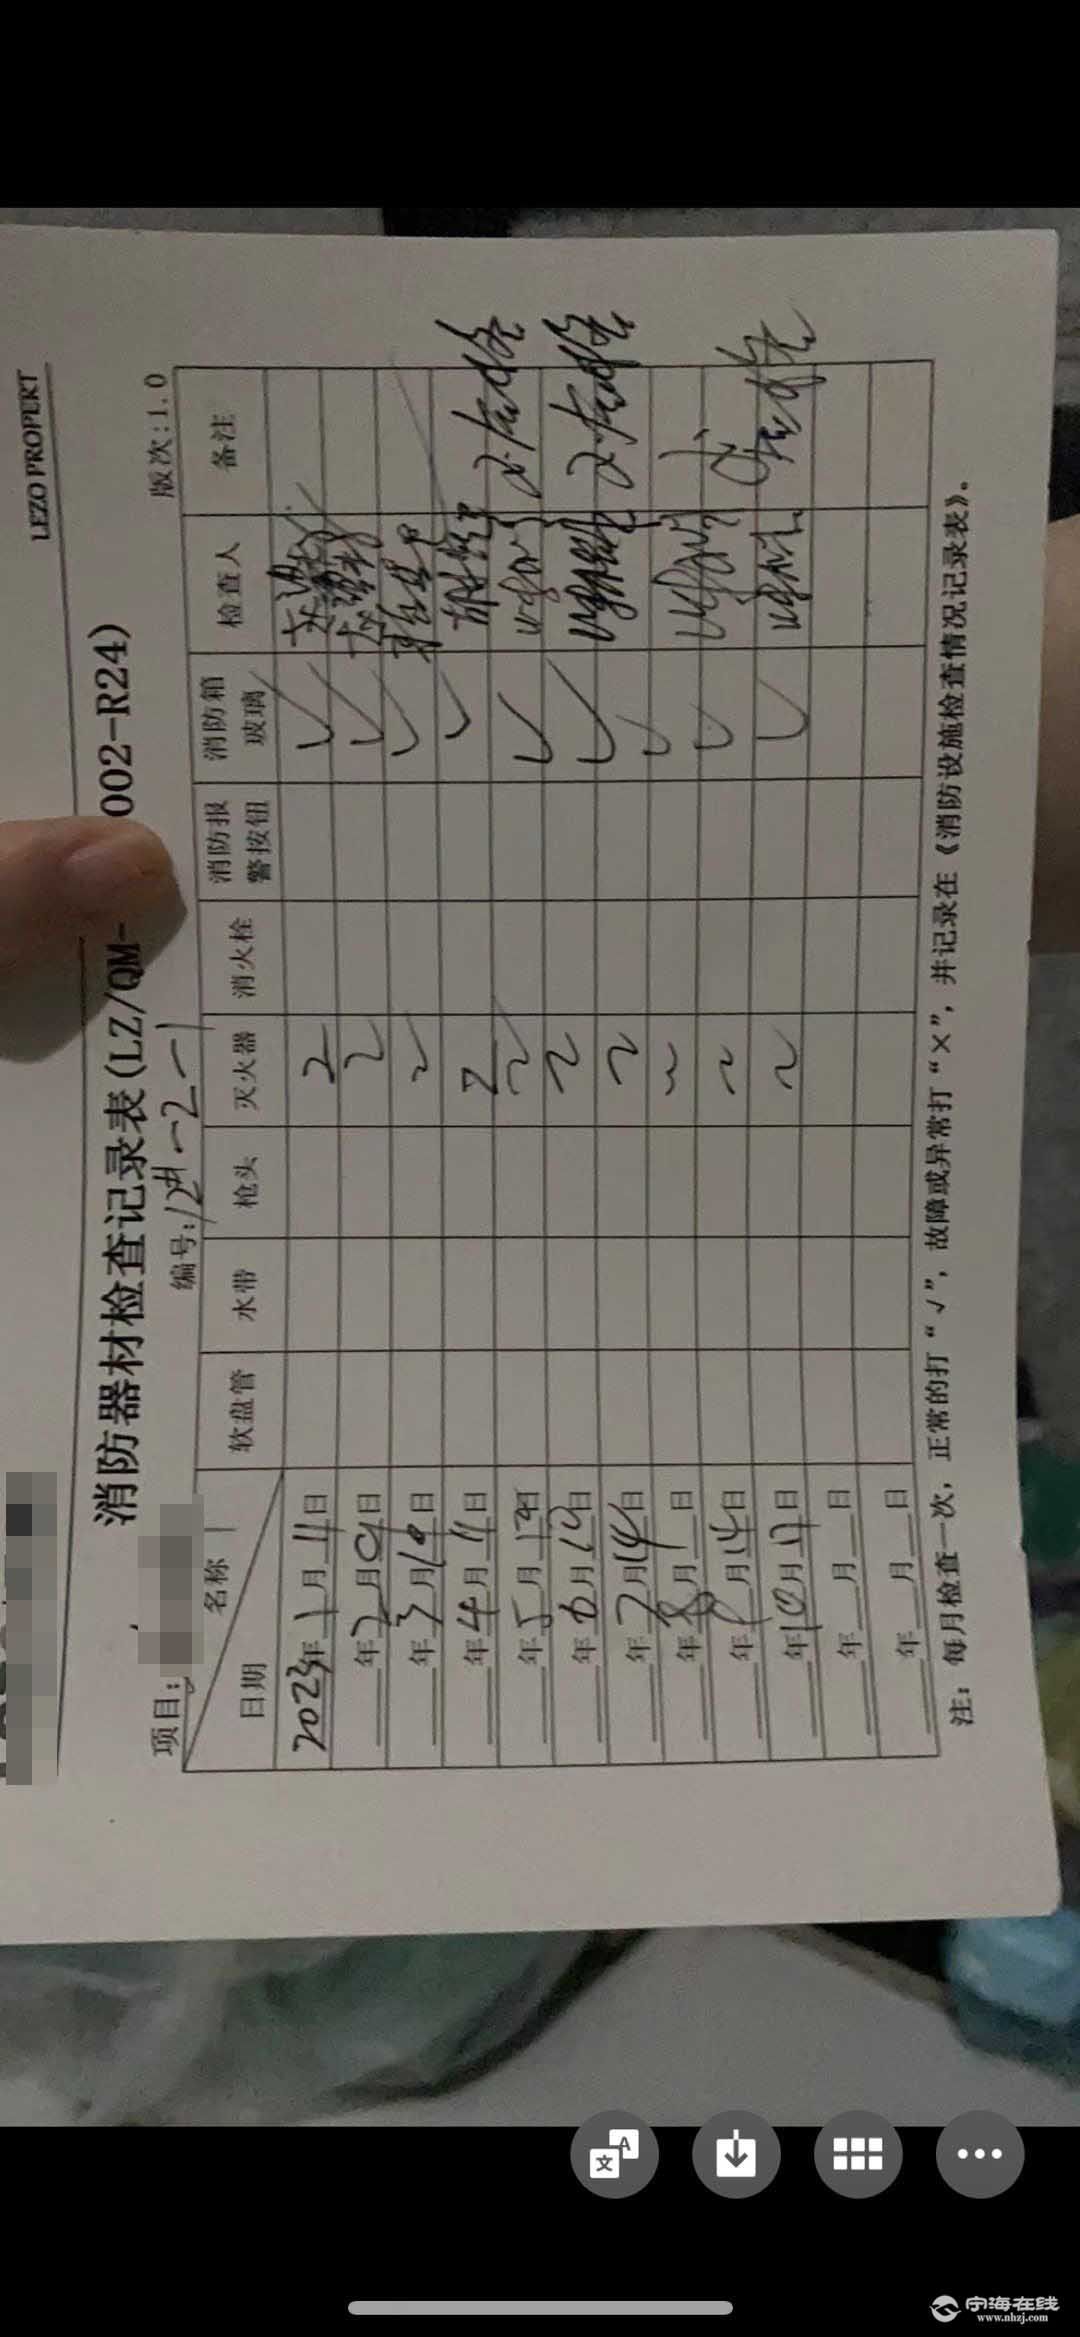 LEZO PROPERT
消防器材检查记录表(LZ/QM-002-R24)
项目:
编号:12#-2-1
版次:1.0
名称
日期
软盘管
水带
枪头
灭火器
消火栓
消防报警按钮
消防箱玻璃
检查人
备注
2023年1月11日 2 √
年2月09日 2 √
年3月10日 2 √
年4月11日 2 √
年5月12日 2 √
年6月12日 2 √
年7月14日 2 √
年8月1日 2 √
年月14日 2 √
年10月17日 2 √
年月日
年月日
注: 每月检查一次, 正常的打“√”, 故障或异常打“×”, 并记录在《消防设施检查情况记录表》。
宁海在线
www.nhzj.com